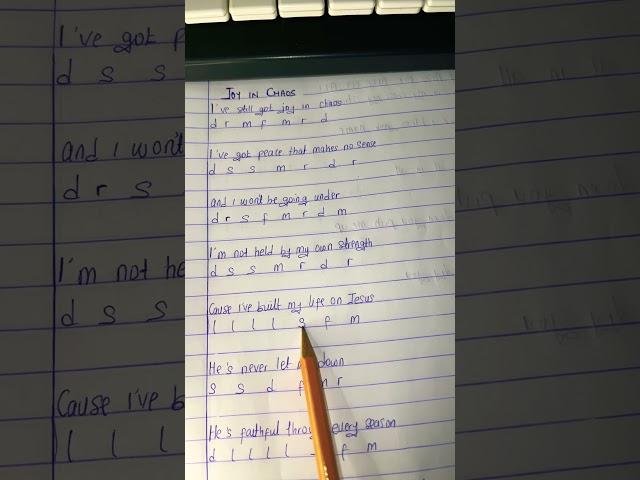 JOY IN CHAOS
I've still got joy in chaos
d r m f m r d
I've got peace that makes no sense
d s s m r d r
and I won't be going under
d r s f m r d m
I'm not held by my own strength
d s s m r d r
Cause I've built my life on Jesus
l l l l s f m
He's never let down
s s d f m r
He's faithful through every season
d l l l l f m